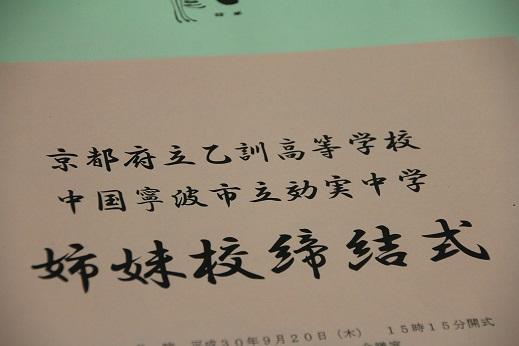 京都府立乙訓高等学校
中国寧波市立効実中学
姉妹校締結式
平成30年9月20日（木） 15時15分開式
会議室